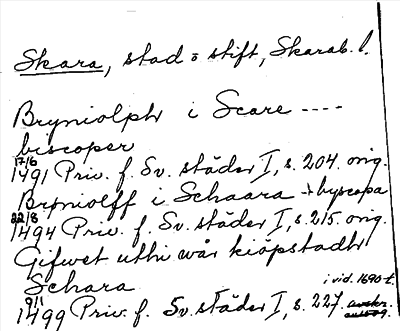 Skara, stad o stift, Skarab. l.
Bryniolph i Scare ----
biscoper
17/6
1491 Priv. f. Sv. städer I, s. 204. orig.
Brpniolff i Schaara + byscopa
22/8
1494 Priv. f. Sv. städer I, s. 215. orig.
Gifwet uthi wår kiöpstadh
Schara
i vid. 1690-t.
9/1
1499 Priv. f. Sv. städer I, s. 227.